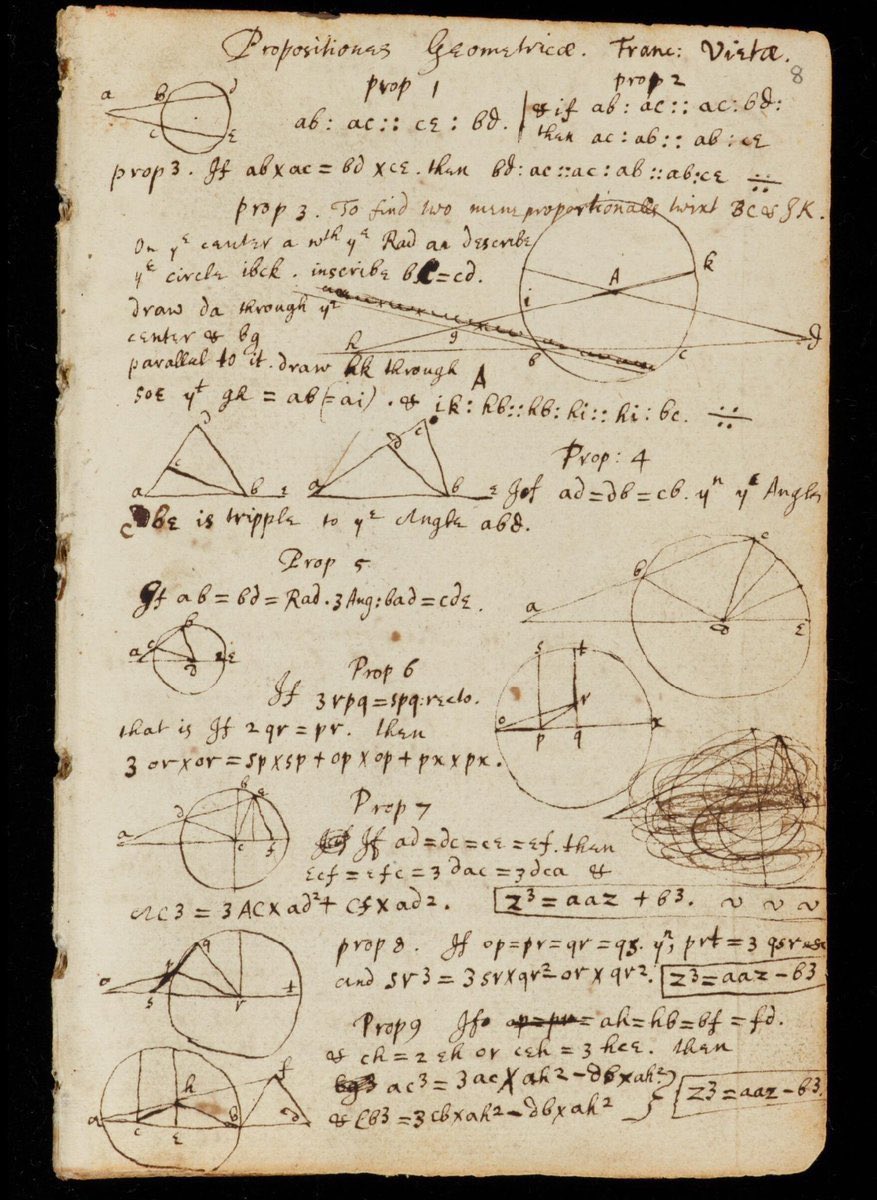 Propositiones Geometricæ. Franc: Vietæ.
8
prop 1
ab: ac:: cε: bd.
prop 2
& if ab: ac:: ac: bd:
then ac: ab:: ab: cε
prop 3. If ab x ac = bd x cε. then bd: ac :: ac: ab :: ab: cε ∺
prop 3. To find two meane proportionalls twixt BC & IK.
On yᵉ center a wᵗʰ yᵉ Rad ai describe
yᵉ circle ibck. inscribe bc = cd.
draw da through yᵉ
center & bg
parallel to it. draw hk through A
soe yᵗ gh = ab (= ai). & ik: hb:: hb: hi:: hi: bc. ∺
Prop: 4
If ad = db = cb. yⁿ yᵉ Angle
cbε is tripple to yᵉ Angle abd.
Prop 5
If ab = bd = Rad. 3 Ang: bad = cdε.
Prop 6
If 3rpq = spq: recto.
that is If 2qr = pr. then
3 or x or = sp x sp + op x op + px x px.
Prop 7
If ad = dc = cε = εf. then
εcf = εfc = 3 dac = 3 dca &
AC3 = 3AC x ad2 + cf x ad2. z3 = aaz + b3.
prop 8. If op = pr = qr = qs. yⁿ, prt = 3 qsr
and sr3 = 3 sr x qr2 - or x qr2. z3 = aaz - b3
Prop 9 If ap = pr = ah = hb = bf = fd.
& ch = 2 εh or cεh = 3 hcε. then
ac3 = 3ac x ah2 - db x ah2
& cb3 = 3cb x ah2 - db x ah2 } z3 = aaz - b3.